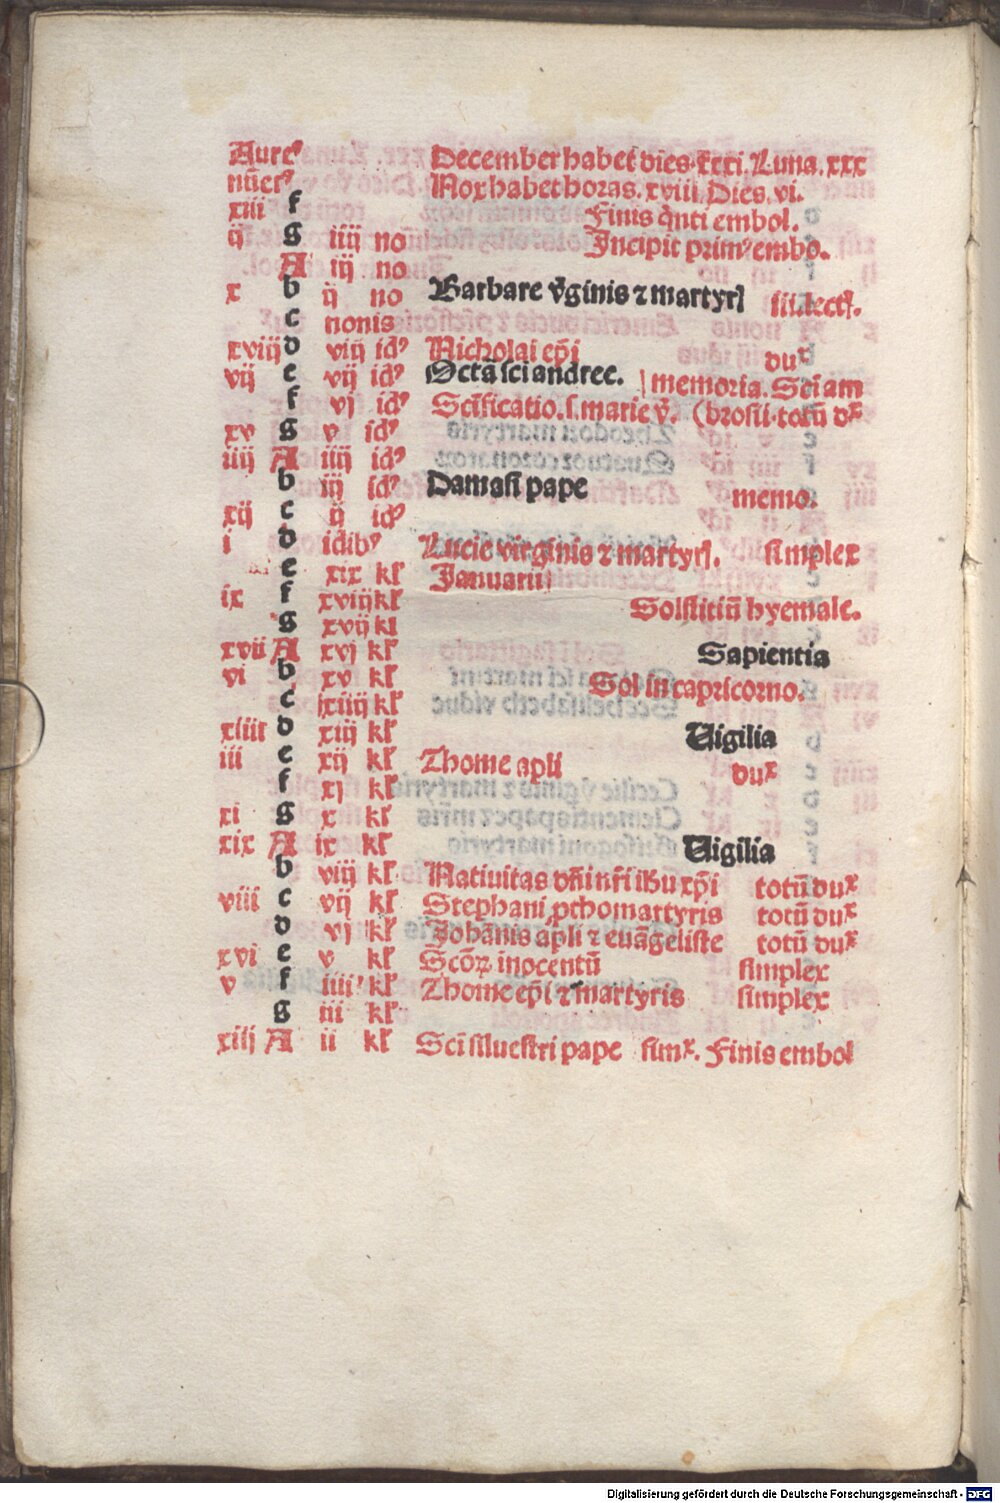 Aure⁹ December habet dies. xxxi. Luna. xxx
nūer⁹ Nox habet horas. xviii. Dies. vi.
xiii f Finis q̄nti embol.
ij g iiij no Incipit prim⁹ embo.
A iij no
x b ij no Barbare v̄ginis ⁊ martyrꝭ iii. lectꝭ.
c nonis
xviij d viij id⁹ Nicholai ep̄i duˣ
vij e vij id⁹ Octā sci andree. memoria. Sci am
f vj id⁹ Scīficatio. s. marie v̄. (brosii. totū dˣ
xv g v id⁹
iiij A iiij id⁹
b iij id⁹ Damasi pape memo.
xij c ij id⁹
i d idib⁹ Lucie virginis ⁊ martyrꝭ. simplex
e xix kl̄ Januarij
ix f xviij kl̄ Solstitiū hyemale.
g xvij kl
xvii A xvj kl̄ Sapientia
vi b xv kl̄ Sol in capricorno.
c xiiij kl̄
xiiii d xiij kl̄ Vigilia
iii e xij kl̄ Thome apl̄i duˣ
f xj kl̄
xi g x kl̄
xix A ix kl̄ Vigilia
b viij kl̄ Nativitas dn̄i nr̄i ih̄u xp̄i totū duˣ
viii c vij kl̄ Stephani ꝓthomartyris totū duˣ
d vj kl̄ Johānis ap̄li ⁊ euāgeliste totū duˣ
xvi e v kl̄ Scōꝝ inocentū simplex
v f iiii kl̄ Thome ep̄i ⁊ martyris simplex
g iii kl̄
xiij A ii kl̄ Scī silvestri pape simˣ. Finis embol
Digitalisierung gefördert durch die Deutsche Forschungsgemeinschaft - DFG